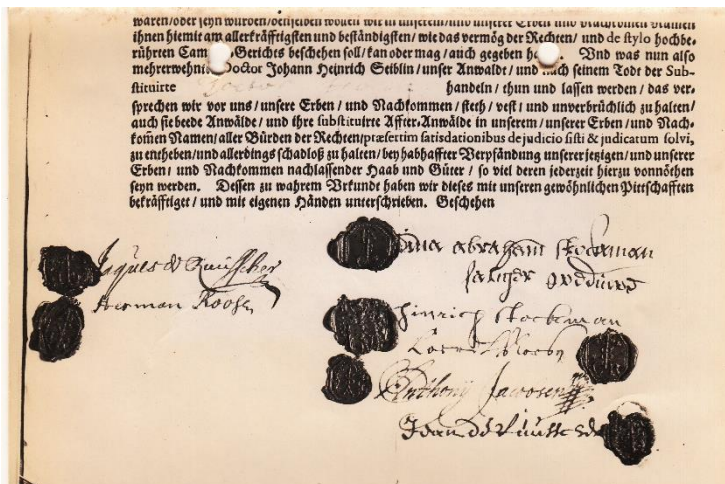 waren/oder seyn würden/denselben wollen wir in unserem/und unserer Erben und Nachkomen Namen
ihnen hiemit am allerkräfftigsten und beständigsten/wie das vermög der Rechten/und de stylo hochbe-
rührten Cam Gerichts beschehen soll/kan oder mag/auch gegeben ha . Vnd was nun also
mehrerwehnte Doctor Johann Heinrich Seiblin/unser Anwalde/und nach seinem Todt der Sub-
stituirte handeln/thun und lassen werden/das ver-
sprechen wir vor uns/unsere Erben und Nachkommen/steth/vest und unverbrüchlich zu halten/
auch sie beede Anwälde/und ihre substituirte Affter-Anwälde in unserem/unserer Erben/und Nach-
kom̃en Namen/aller Bürden der Rechten/præsertim satisdationibus de judicio sisti & judicatum solvi,
zu entheben/und allerdings schadloß zu halten/bey habhaffter Verpfändung unserer jetzigen/und unserer
Erben/und Nachkommen nachlassender Haab und Güter/so viel deren jederzeit hierzu vonnöthen
seyn werden. Dessen zu wahrem Vrkunde haben wir dieses mit unseren gewöhnlichen Pittschafften
bekräfftiget/und mit eigenen Händen unterschrieben. Geschehen
abraham stockman
Jaques de
Herman Roosen
hinrich stockman
Anthony Jacobsen
Jean de